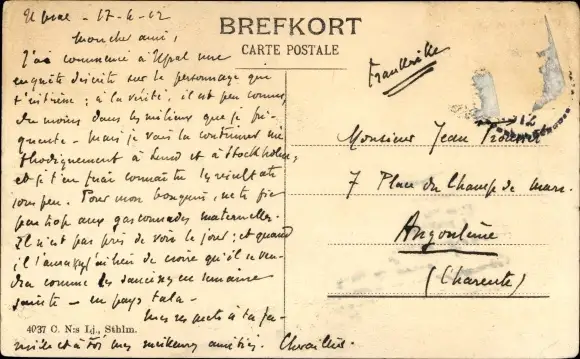 17-4-12
BREFKORT
CARTE POSTALE
Mon cher ami,
J'ai commencé à Upsal une
enquête discrète sur le personnage que
t'intéresse ; à la vérité, il est peu connu,
du moins dans les milieux que je fré-
quente - mais je vais la continuer mé
thodiquement à Lund et à Stockholm,
et je t'en ferai connaître les résultats
sous peu. Pour mon bouquin, ne te fie
pas trop aux gasconnades maternelles.
Il n'est pas près de voir le jour ; et quand
il l'aura j'ai lieu de croire qu'il se ven-
dra comme des saucisses en semaine
sainte - en pays
Mes respects à ta fa-
mille et à toi mes meilleures amitiés.
4037 C. N:s Lj., Sthlm.
Frankrike
12
Monsieur Jean
7 Place du Champ de mars.
Angoulême
(Charente)